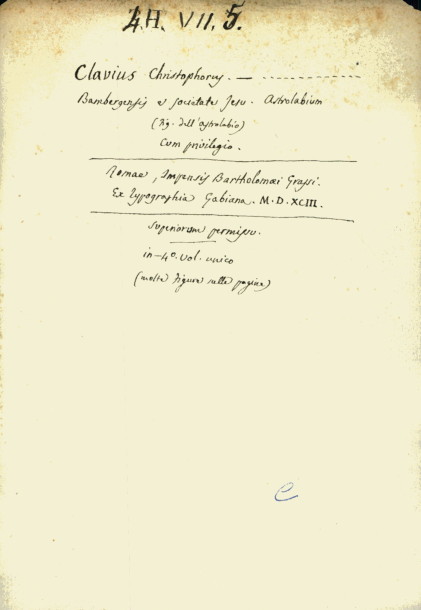 4.H. VII. 5.
Clavius Christophorus. —
Bambergensis e societate Jesu. Astrolabium
(Fig. dell'astrolabio)
Cum privilegio.
Romae, Impensis Bartholomaei Grassi.
Ex Typographia Gabiana. M.D.XCIII.
Superiorum permissu.
in-4º. vol. unico
(molte figure nelle pagine)
C